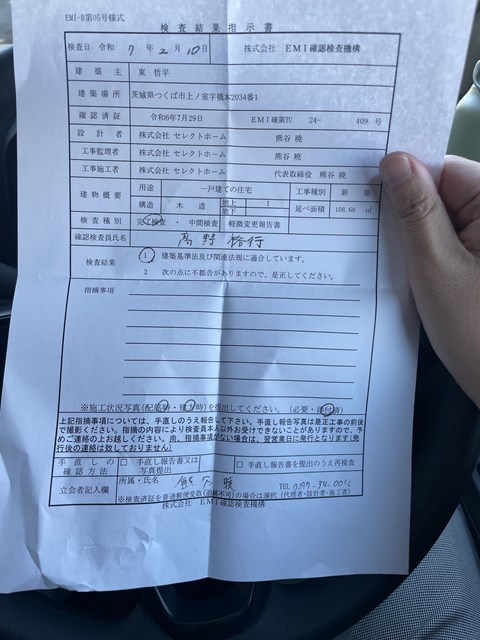 EMI-B第05号様式
検査結果指示書
検査日 令和 7 年 2 月 10 日 株式会社 EMI確認検査機構
建築主 東 哲平
建築場所 茨城県つくば市上ノ室字橋本2034番1
確認済証 令和6年7月29日 EMI確第TU 24- 409 号
設計者 株式会社 セレクトホーム 熊谷 暁
工事監理者 株式会社 セレクトホーム 熊谷 暁
工事施工者 株式会社 セレクトホーム 代表取締役 熊谷 暁
建物概要 用途 一戸建ての住宅 工事種別 新築
構造 木造 地上 1 地下 延べ面積 108.68 ㎡
検査種別 完了検査 ・ 中間検査 軽微変更報告書
確認検査員氏名 高野 裕行
検査結果 1 建築基準法及び関連法規に適合しています。
2 次の点に不都合がありますので、是正してください。
指摘事項
※施工状況写真(配筋時・建方時)を提出してください。(必要・添付済)
上記指摘事項については、手直しのうえ報告して下さい。手直し報告写真は是正工事の前後
で撮影ください。指摘の内容により検査員本人以外お受けできないことがありますので、予
めご連絡の上お越しください。尚、指摘事項がない場合は、翌営業日に発行となります(発
行後の連絡は致しておりません)
手直しの確認方法 □ 手直し報告書又は写真提出 □ 手直し報告書を提出のうえ再検査
立会者記入欄 所属・氏名 TEL
※検査済証を普通郵便受取(追跡不可)の場合は選択 (代理者・設計者・施工者)
株式会社 EMI確認検査機構